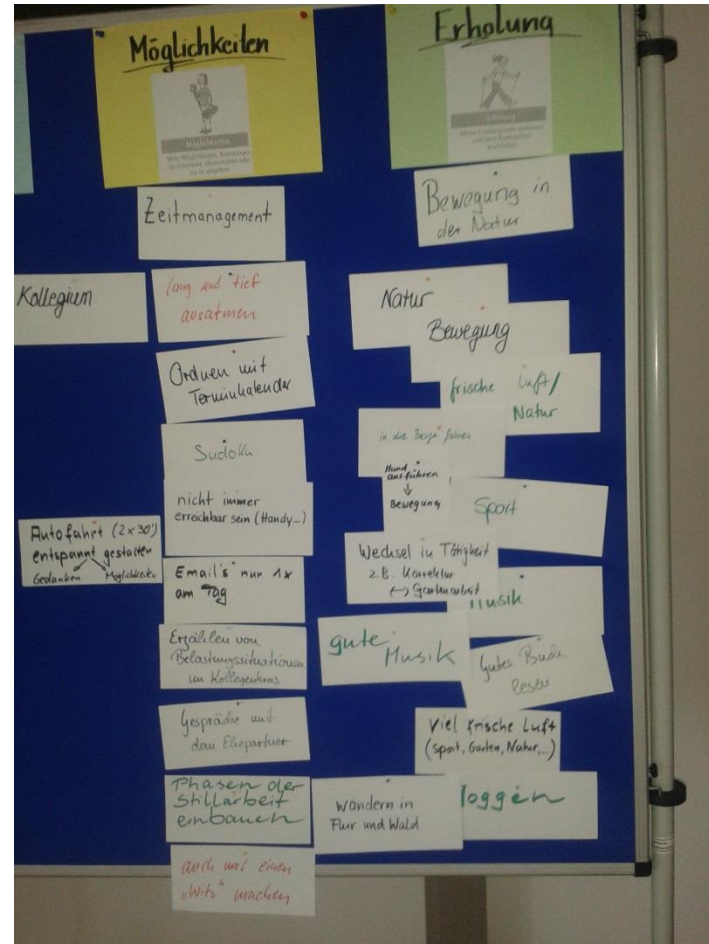 Möglichkeiten
Möglichkeiten
Zeitmanagement
Kollegium
lang und tief
ausatmen
Ordnen mit
Terminkalender
Sudoku
nicht immer
erreichbar sein (Handy...)
Autofahrt (2x30')
entspannt gestalten
Gedanken Möglichkeiten
Email's nur 1x
am Tag
Erzählen von
Belastungssituationen
im Kollegenkreis
Gespräche mit
dem Ehepartner
Phasen der
Stillarbeit
einbauen
auch mal einen
"Witz" machen
Erholung
Erholung
Bewegung in
der Natur
Natur
Bewegung
frische Luft/
Natur
in die Berge fahren
Hund
ausführen
↓
Bewegung
Sport
Wechsel in Tätigkeit
z.B. Korrektur
↔ Gartenarbeit
Musik
gute
Musik
Gutes Buch
lesen
Viel frische Luft
(Sport, Garten, Natur,...)
wandern in
Flur und Wald
Joggen